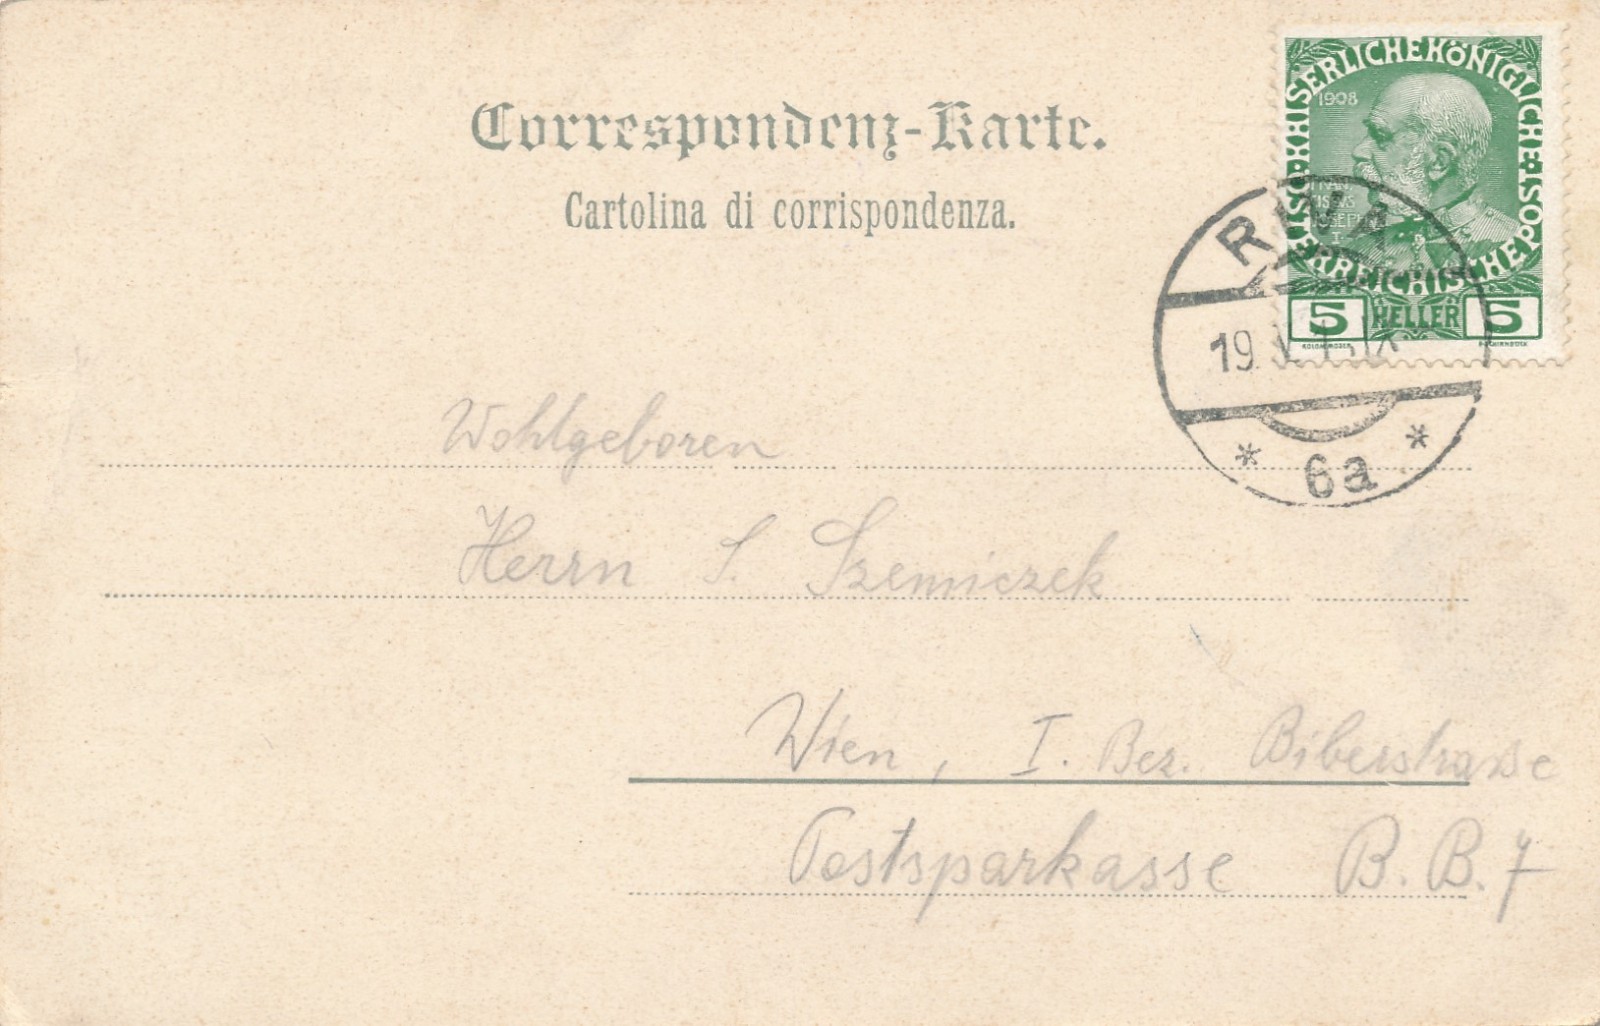 Correspondenz-Karte.
Cartolina di corrispondenza.
KAISERLICHEKÖNIGLICHE ÖSTERREICHISCHE POST
1908
FRAN
JOSEPH
I
5 HELLER 5
RIVA
19
6a
Wohlgeboren
Herrn S. Szemiczek
Wien, I. Bez. Biberstrasse
Postsparkasse B. B. 7